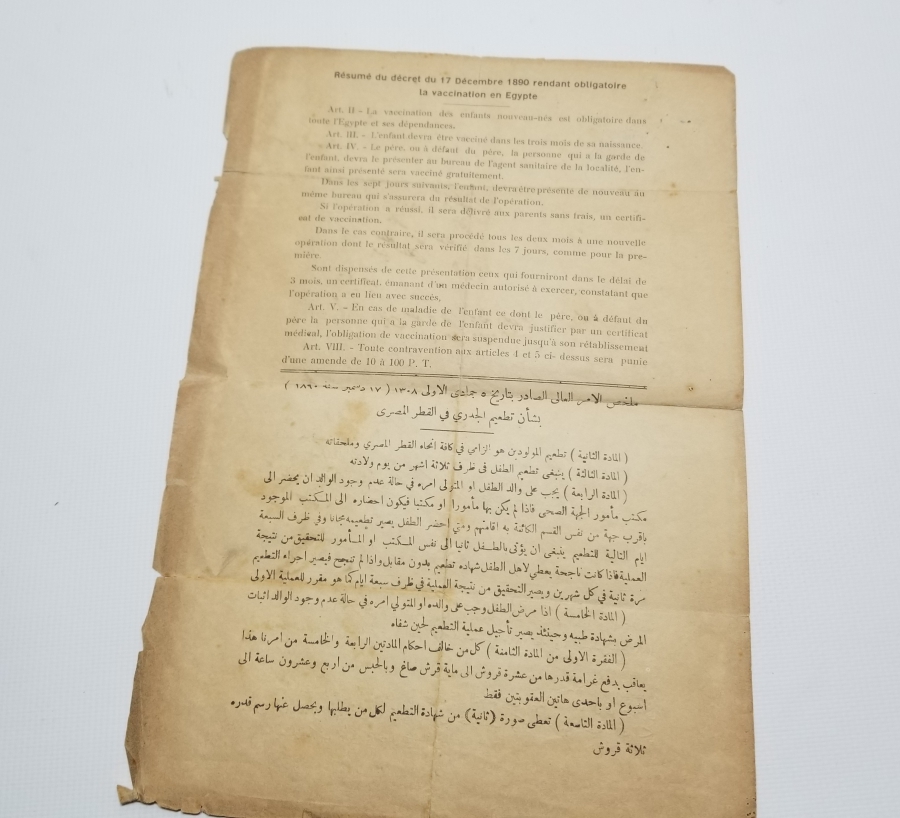 Résumé du décret du 17 Décembre 1890 rendant obligatoire
la vaccination en Egypte
Art. II - La vaccination des enfants nouveau-nés est obligatoire dans
toute l'Egypte et ses dépendances.
Art. III. - L'enfant devra être vacciné dans les trois mois de sa naissance.
Art. IV. - Le père, ou à défaut du père, la personne qui a la garde de
l'enfant, devra le présenter au bureau de l'agent sanitaire de la localité, l'en-
fant ainsi présenté sera vacciné gratuitement.
Dans les sept jours suivants, l'enfant, devra être présenté de nouveau au
même bureau qui s'assurera du résultat de l'opération.
Si l'opération a réussi, il sera délivré aux parents sans frais, un certifi-
cat de vaccination.
Dans le cas contraire, il sera procédé tous les deux mois à une nouvelle
opération dont le résultat sera vérifié dans les 7 jours, comme pour la pre-
mière.
Sont dispensés de cette présentation ceux qui fourniront dans le délai de
3 mois, un certificat, émanant d'un médecin autorisé à exercer, constatant que
l'opération a eu lieu avec succès.
Art. V. - En cas de maladie de l'enfant ce dont le père, ou à défaut du
père la personne qui a la garde de l'enfant devra justifier par un certificat
médical, l'obligation de vaccination sera suspendue jusqu'à son rétablissement
Art. VIII. - Toute contravention aux articles 4 et 5 ci- dessus sera punie
d'une amende de 10 à 100 P. T.
ملخص الامر العالى الصادر بتاريخ ٥ جمادى الاولى ١٣٠٨ ( ١٧ دسمبر سنة ١٨٩٠ )
بشأن تطعيم الجدري في القطر المصرى
( المادة الثانية ) تطعيم المولودين هو الزامي في كافة انحاء القطر المصري وملحقاته
( المادة الثالثة ) ينبغى تطعيم الطفل فى ظرف ثلاثة اشهر من يوم ولادته
( المادة الرابعة ) يجب على والد الطفل او المتولى امره في حالة عدم وجود الوالد ان يحضر الى
مكتب مأمور الجهة الصحى فاذا لم يكن بها مأمورا او مكتبا فيكون احضاره الى المكتب الموجود
باقرب جهة من نفس القسم الكائنة به اقامتهم ومتى احضر الطفل يصير تطعيمه مجانا وفي ظرف السبعة
ايام التالية للتطعيم ينبغى ان يؤتى بالطفل ثانيا الى نفس المكتب او المأمور للتحقيق من نتيجة
العملية فاذا كانت ناجحة يعطي لاهل الطفل شهاده تطعيم بدون مقابل واذا لم تنجح فيصير اجراء التطعيم
مرة ثانية في كل شهرين ويصير التحقيق من نتيجة العملية في ظرف سبعة ايام كما هو مقرر للعملية الاولى
( المادة الخامسة ) اذا مرض الطفل وجب على والده او المتولي امره في حالة عدم وجود الوالد اثبات
المرض بشهادة طبيه وحينئذ يصير تأجيل عملية التطعيم لحين شفاه
( الفقرة الاولى من المادة الثامنة ) كل من خالف احكام المادتين الرابعة والخامسة من امرنا هذا
يعاقب بدفع غرامة قدرها من عشرة قروش الى ماية قرش صاغ وبالحبس من اربع وعشرون ساعة الى
اسبوع أو باحدى هاتين العقوبتين فقط
( المادة التاسعة ) تعطى صورة (ثانية) من شهادة التطعيم لكل من يطلبها ويحصل عنها رسم قدره
ثلاثة قروش